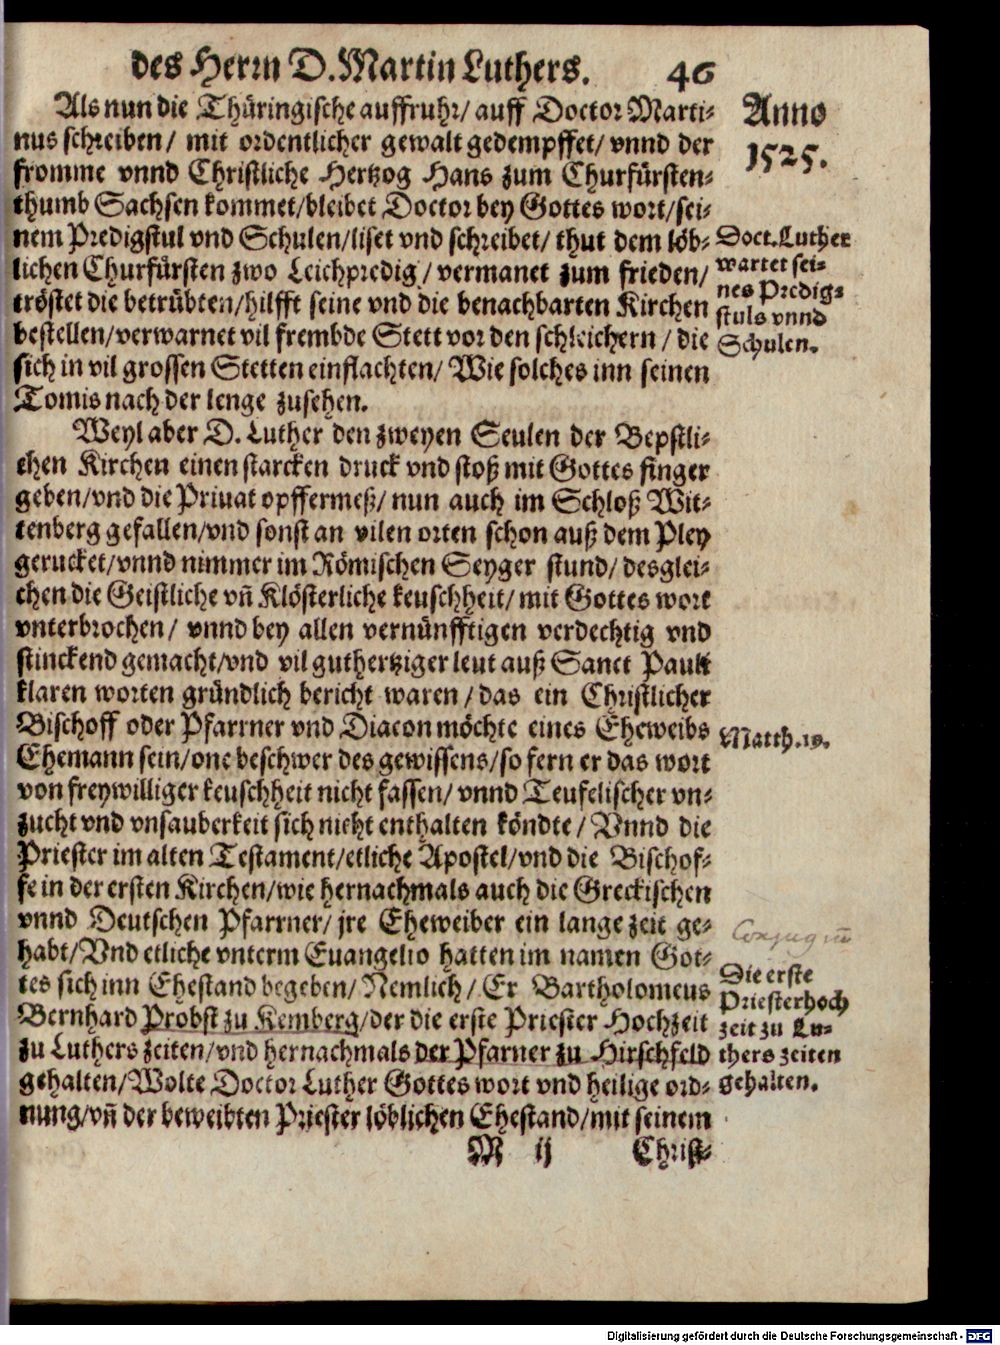 des Herrn D. Martin Luthers. 46
Als nun die Thüringische auffruhr/ auff Doctor Marti-
nus schreiben/ mit ordentlicher gewalt gedempffet/ vnnd der
fromme vnnd Christliche Hertzog Hans zum Churfürsten-
thumb Sachsen kommet/bleibet Doctor bey Gottes wort/sei-
nem Predigstul vnd Schulen/liset vnd schreibet/ thut dem löb-
lichen Churfürsten zwo Leichpredig/ vermanet zum frieden/
tröstet die betrübten/hilfft seine vnd die benachbarten Kirchen
bestellen/verwarnet vil frembde Stett vor den schleichern/ die
sich in vil grossen Stetten einflachten/ Wie solches inn seinen
Tomis nach der lenge zusehen.
Weyl aber D. Luther den zweyen Seulen der Bepstli-
chen Kirchen einen starcken druck vnd stoß mit Gottes finger
geben/vnd die Priuat opffermeß/ nun auch im Schloß Wit-
tenberg gefallen/vnd sonst an vilen orten schon auß dem Pley
gerucket/vnnd nimmer im Römischen Seyger stund/ desglei-
chen die Geistliche vñ Klösterliche keuschheit/ mit Gottes wort
vnterbrochen/ vnnd bey allen vernünfftigen verdechtig vnd
stinckend gemacht/vnd vil guthertziger leut auß Sanct Pauli
klaren worten gründlich bericht waren/ das ein Christlicher
Bischoff oder Pfarrner vnd Diacon möchte eines Eheweibs
Ehemann sein/one beschwer des gewissens/so fern er das wort
von freywilliger keuschheit nicht fassen/ vnnd Teufelischer vn-
zucht vnd vnsauberkeit sich nicht enthalten köndte/ Vnnd die
Priester im alten Testament/etliche Apostel/vnd die Bischof-
fe in der ersten Kirchen/wie hernachmals auch die Greckischen
vnnd Deutschen Pfarrner/ jre Eheweiber ein lange zeit ge-
habt/Vnd etliche vnterm Euangelio hatten im namen Got-
tes sich inn Ehestand begeben/ Nemlich/ Er Bartholomeus
Bernhard Probst zu Kemberg/der die erste Priester Hochzeit
zu Luthers zeiten/vnd hernachmals der Pfarner zu Hirschfeld
gehalten/Wolte Doctor Luther Gottes wort vnd heilige ord-
nung/vñ der beweibten Priester löblichen Ehestand/mit seinem
M ij Christ-
Anno
1525.
Doct. Luther
wartet sei-
nes Predig-
stuls vnnd
Schulen.
Matth. 19.
Conjugiū
Die erste
Priesterhoch
zeit zu Lu-
thers zeiten
gehalten.
Digitalisierung gefördert durch die Deutsche Forschungsgemeinschaft - DFG